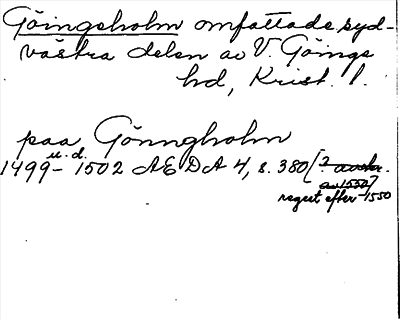 Göingeholm omfattade syd-
västra delen av V. Göinge
hd, Krist. l.
paa Gönngholm
u. d.
1499 - 1502 AEDA 4, s. 380 [?
av 1550]
regest efter 1550